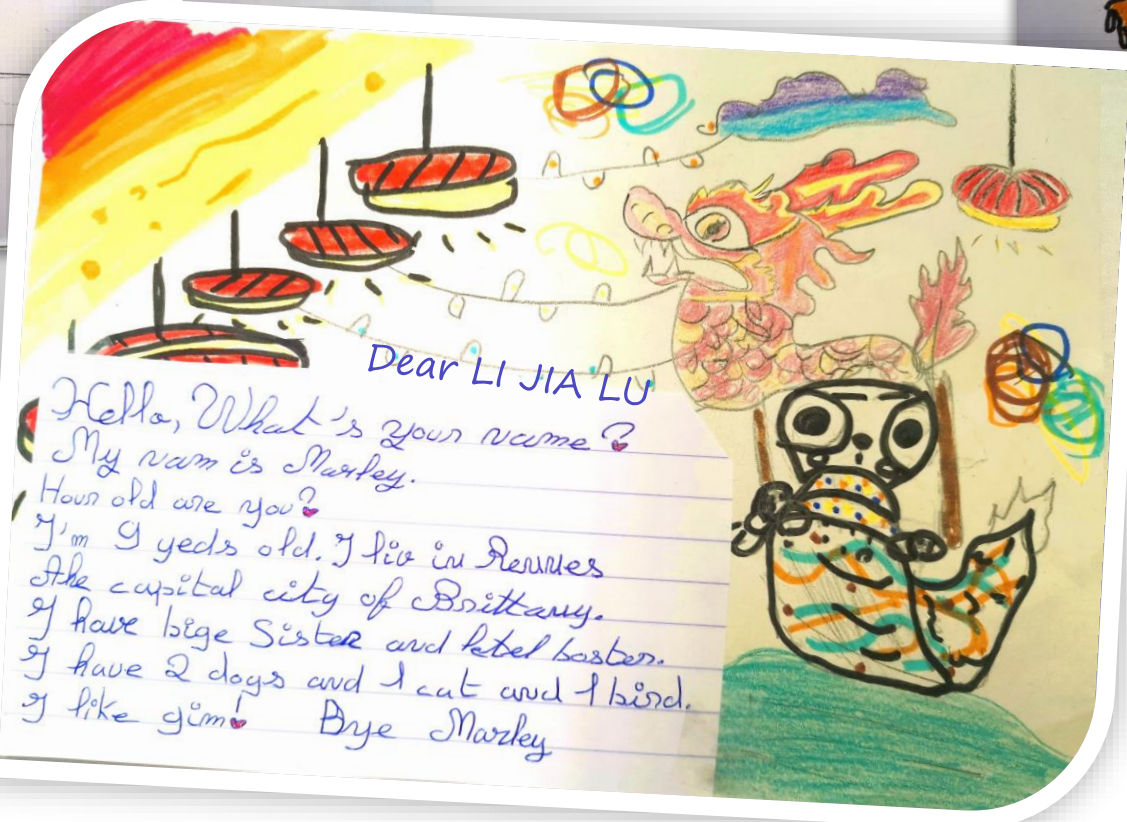 Dear LI JIA LU
Hello, What's your name?
My nam is Marley.
How old are you?
I'm 9 yeds old. I liv in Rennes
the capital city of Brittany.
I have bige Sister and letel boster.
I have 2 dogs and 1 cat and 1 bird.
I like gim! Bye Marley